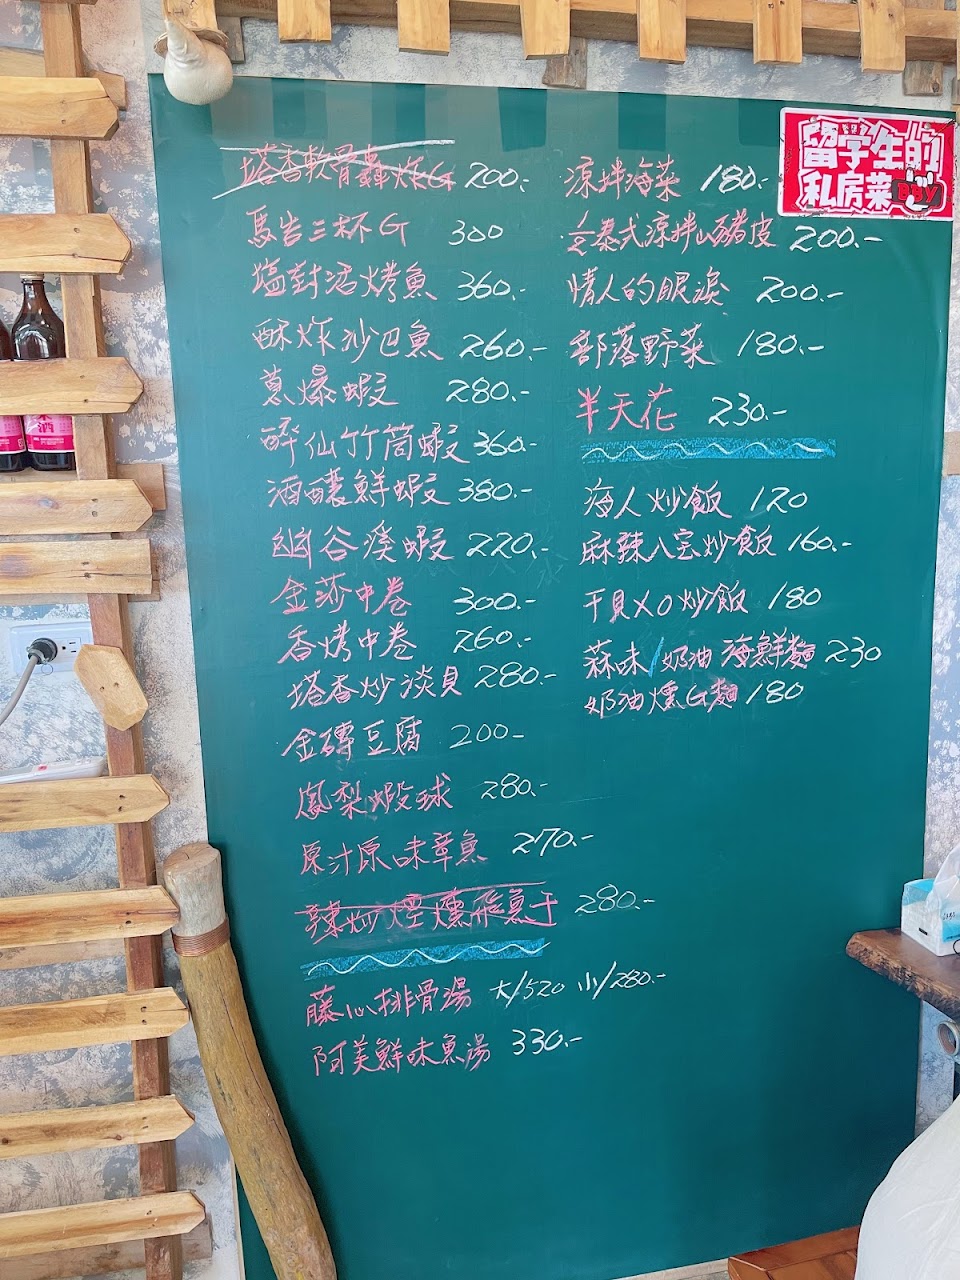 塔香軟骨轟炸G 200.-
馬告三杯G 300
塩封活烤魚 360.-
酥炸沙巴魚 260.-
蔥爆蝦 280.-
醉仙竹筒蝦 360.-
酒釀鮮蝦 380.-
幽谷溪蝦 220.-
金莎中卷 300.-
香烤中卷 260.-
塔香炒淡貝 280.-
金磚豆腐 200-
鳳梨蝦球 280.-
原汁原味章魚 270.-
辣炒煙燻飛魚干 280.-
藤心排骨湯 大/520 小/280.-
阿美鮮味魚湯 330.-
涼拌海菜 180.-
泰式涼拌山豬皮 200.-
情人的眼淚 200.-
部落野菜 180.-
半天花 230.-
海人炒飯 120
麻辣八宝炒飯 160.-
干貝XO炒飯 180
蒜味/奶油 海鮮麵 230
奶油燻G麵 180
留学生的
私房菜